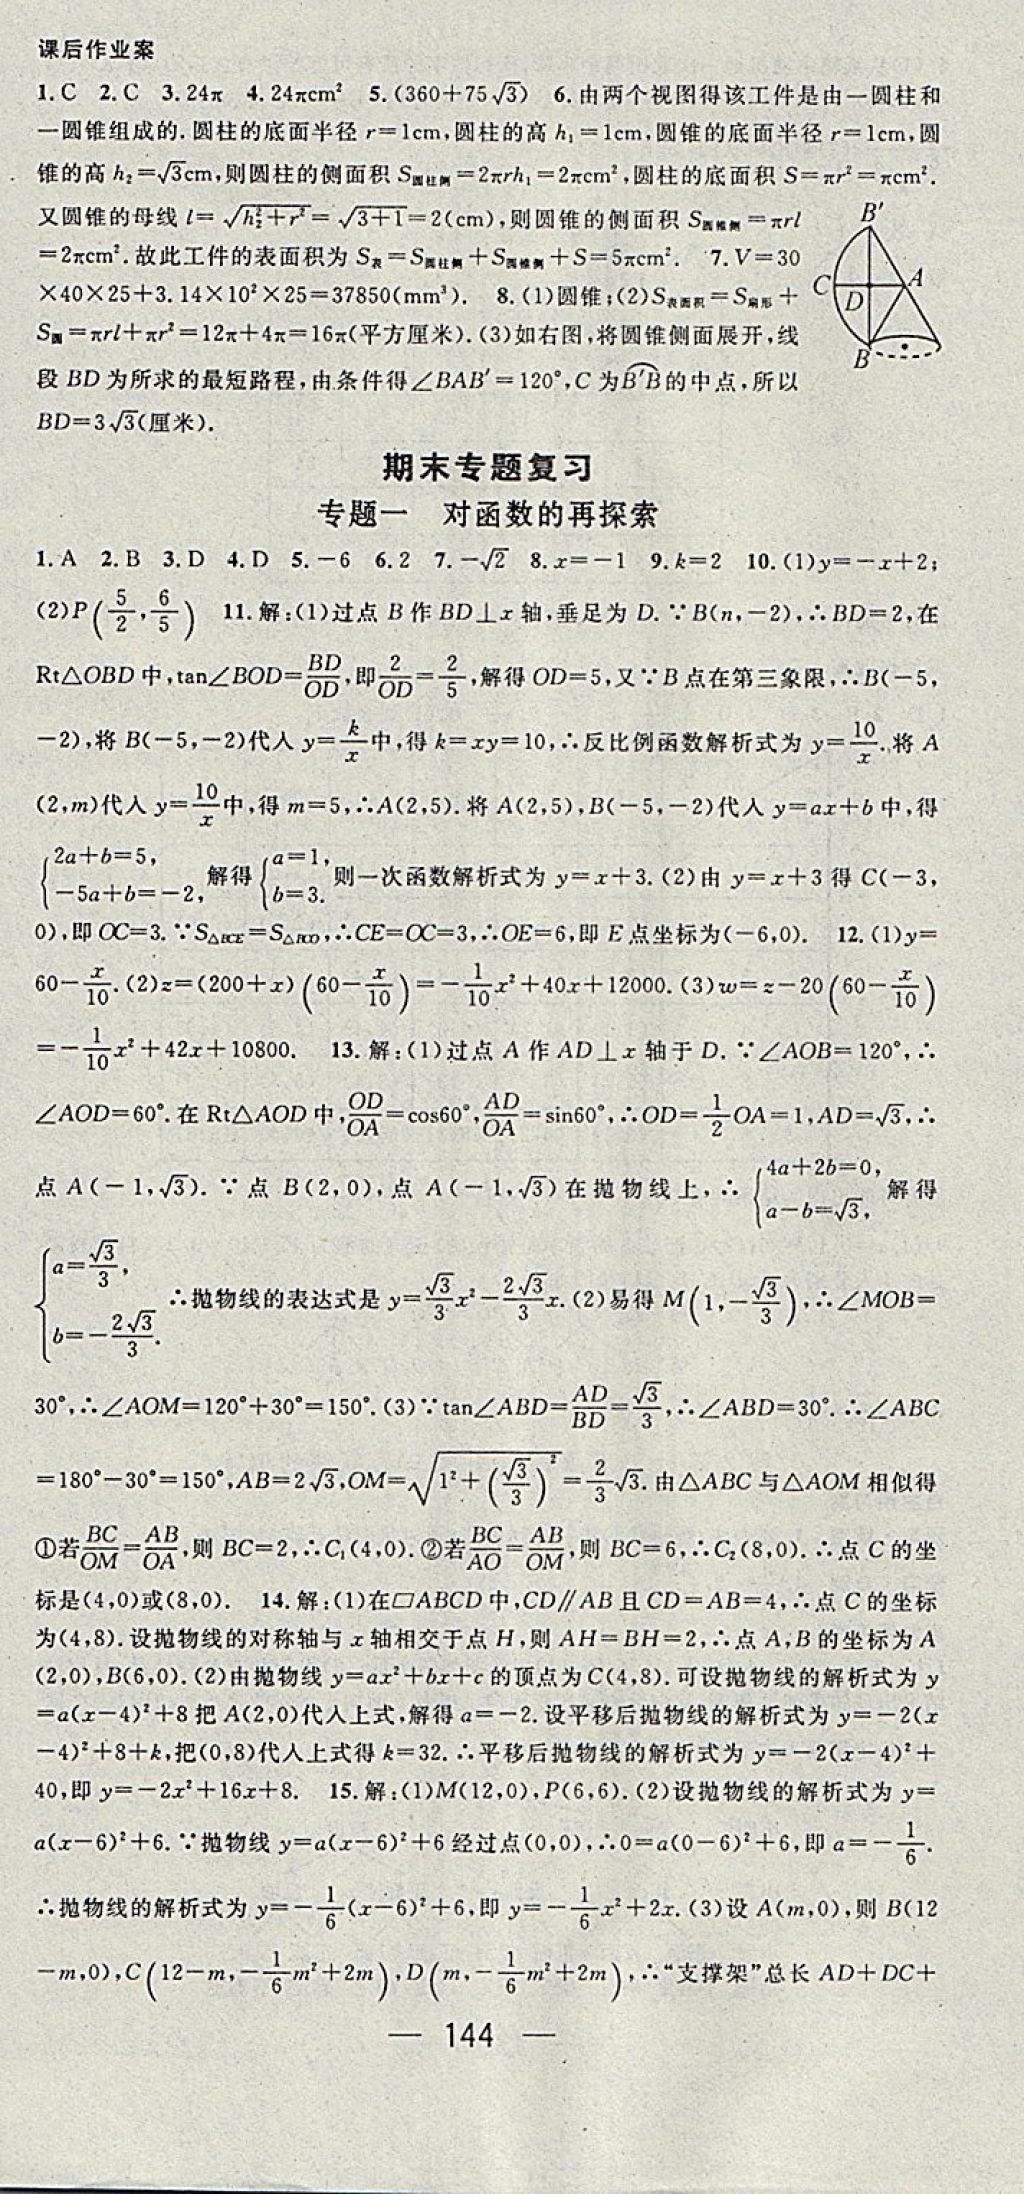 课后作业案
1.C 2.C 3.24π 4.24πcm² 5.(360+75√3) 6.由两个视图得该工件是由一圆柱和
一圆锥组成的.圆柱的底面半径 r=1cm,圆柱的高 h₁=1cm,圆锥的底面半径 r=1cm,圆
锥的高 h₂=√3cm,则圆柱的侧面积 S圆柱侧=2πrh₁=2πcm²,圆柱的底面积 S=πr²=πcm².
又圆锥的母线 l=√(h₂²+r²)=√(3+1)=2(cm),则圆锥的侧面积 S圆锥侧=πrl
=2πcm².故此工件的表面积为 S表=S圆柱侧+S圆锥侧+S=5πcm². 7.V=30
×40×25+3.14×10²×25=37850(mm³). 8.(1)圆锥;(2)S表面积=S扇形+
S圆=πrl+πr²=12π+4π=16π(平方厘米).(3)如右图,将圆锥侧面展开,线
段 BD 为所求的最短路程,由条件得∠BAB′=120°,C 为B′B的中点,所以
BD=3√3(厘米).
B′
C
D
A
B
期末专题复习
专题一 对函数的再探索
1.A 2.B 3.D 4.D 5.-6 6.2 7.-√2 8.x=-1 9.k=2 10.(1)y=-x+2;
(2)P(5/2,6/5) 11.解:(1)过点 B 作 BD⊥x 轴,垂足为 D.∵B(n,-2),∴BD=2,在
Rt△OBD 中,tan∠BOD=BD/OD,即2/OD=2/5,解得 OD=5,又∵B 点在第三象限,∴B(-5,
-2),将 B(-5,-2)代人 y=k/x中,得 k=xy=10,∴反比例函数解析式为 y=10/x.将 A
(2,m)代人 y=10/x中,得 m=5,∴A(2,5).将 A(2,5),B(-5,-2)代人 y=ax+b 中,得
{2a+b=5, -5a+b=-2, 解得{a=1, b=3. 则一次函数解析式为 y=x+3.(2)由 y=x+3 得 C(-3,
0),即 OC=3.∵S△BCE=S△BCO,∴CE=OC=3,∴OE=6,即 E 点坐标为(-6,0). 12.(1)y=
60-x/10.(2)z=(200+x)(60-x/10)=-1/10x²+40x+12000.(3)w=z-20(60-x/10)
=-1/10x²+42x+10800. 13.解:(1)过点 A 作 AD⊥x 轴于 D.∵∠AOB=120°,∴
∠AOD=60°.在 Rt△AOD 中,OD/OA=cos60°,AD/OA=sin60°,∴OD=1/2OA=1,AD=√3,∴
点 A(-1,√3).∵点 B(2,0),点 A(-1,√3)在抛物线上,∴{4a+2b=0, a-b=√3, 解得
{a=√3/3, b=-2√3/3. ∴抛物线的表达式是 y=√3/3x²-2√3/3x.(2)易得 M(1,-√3/3),∴∠MOB=
30°,∴∠AOM=120°+30°=150°.(3)∵tan∠ABD=AD/BD=√3/3,∴∠ABD=30°.∴∠ABC
=180°-30°=150°,AB=2√3,OM=√(1²+(√3/3)²)=2/3√3.由△ABC 与△AOM 相似得
①若BC/OM=AB/OA,则 BC=2,∴C₁(4,0).②若BC/AO=AB/OM,则 BC=6,∴C₂(8,0).∴点 C 的坐
标是(4,0)或(8,0). 14.解:(1)在▱ABCD 中,CD∥AB 且 CD=AB=4,∴点 C 的坐标
为(4,8).设抛物线的对称轴与 x 轴相交于点 H,则 AH=BH=2,∴点 A,B 的坐标为 A
(2,0),B(6,0).(2)由抛物线 y=ax²+bx+c 的顶点为 C(4,8).可设抛物线的解析式为 y
=a(x-4)²+8 把 A(2,0)代人上式,解得 a=-2.设平移后抛物线的解析式为 y=-2(x
-4)²+8+k,把(0,8)代人上式得 k=32.∴平移后抛物线的解析式为 y=-2(x-4)²+
40,即 y=-2x²+16x+8. 15.解:(1)M(12,0),P(6,6).(2)设抛物线的解析式为 y=
a(x-6)²+6.∵抛物线 y=a(x-6)²+6 经过点(0,0),∴0=a(0-6)²+6,即 a=-1/6.
∴抛物线的解析式为 y=-1/6(x-6)²+6,即 y=-1/6x²+2x.(3)设 A(m,0),则 B(12
-m,0),C(12-m,-1/6m²+2m),D(m,-1/6m²+2m),∴“支撑架”总长 AD+DC+
— 144 —